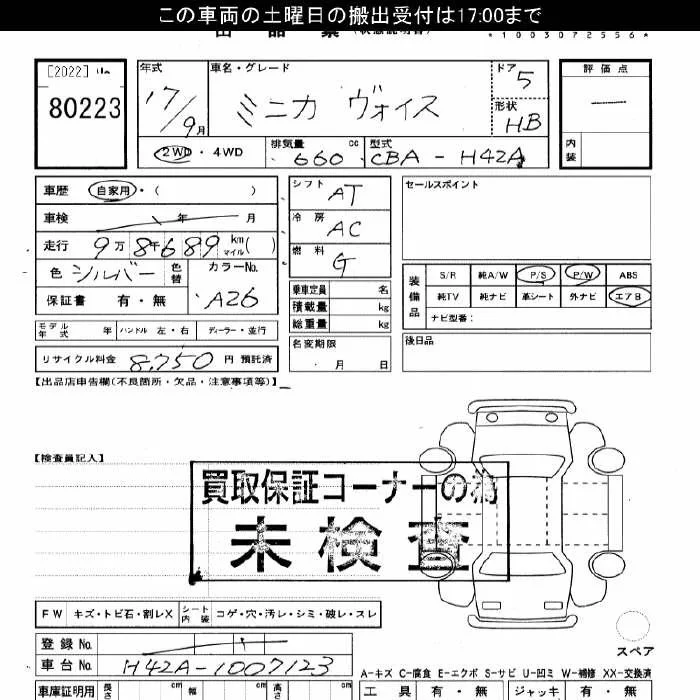 この車両の土曜日の搬出受付は17:00まで
出品票 (状態説明書)
*1003072556*
[2022]
80223
年式
17/9月
車名・グレード
ミニカ ヴォイス
ドア 5
形状 HB
評価点
内装
2WD・4WD
排気量 660 cc
型式 CBA-H42A
車歴 自家用・( )
車検 年 月
走行 9万8千689 km マイル( )
色 シルバー 色替
カラーNo. A26
保証書 有・無
シフト AT
冷房 AC
燃料 G
乗車定員 名
積載量 kg
総重量 kg
セールスポイント
装備品
S/R 純A/W P/S P/W ABS
純TV 純ナビ 革シート 外ナビ エアB
ナビ型番:
モデル年式 年 ハンドル 左・右 ディーラー・並行
名変期限 月 日
後日品
リサイクル料金 8,750 円 預託済
【出品店申告欄(不良箇所・欠品・注意事項等)】
【検査員記入】
買取保証コーナーの為
未検査
FW キズ・トビ石・割レX シート内装 コゲ・穴・汚レ・シミ・破レ・スレ
スペア
登録No.
車台No. H42A-1007123
A-キズ C-腐食 E-エクボ S-サビ U-凹ミ W-補修 XX-交換済
車庫証明用 長さ cm 幅 cm 高さ cm
工具 有・無 ジャッキ 有・無